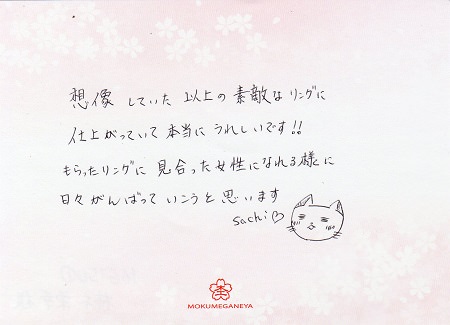 想像していた以上の素敵なリングに
仕上がっていて本当にうれしいです!!
もらったリングに見合った女性になれる様に
日々がんばっていこうと思います
sachi♡
MOKUMEGANEYA